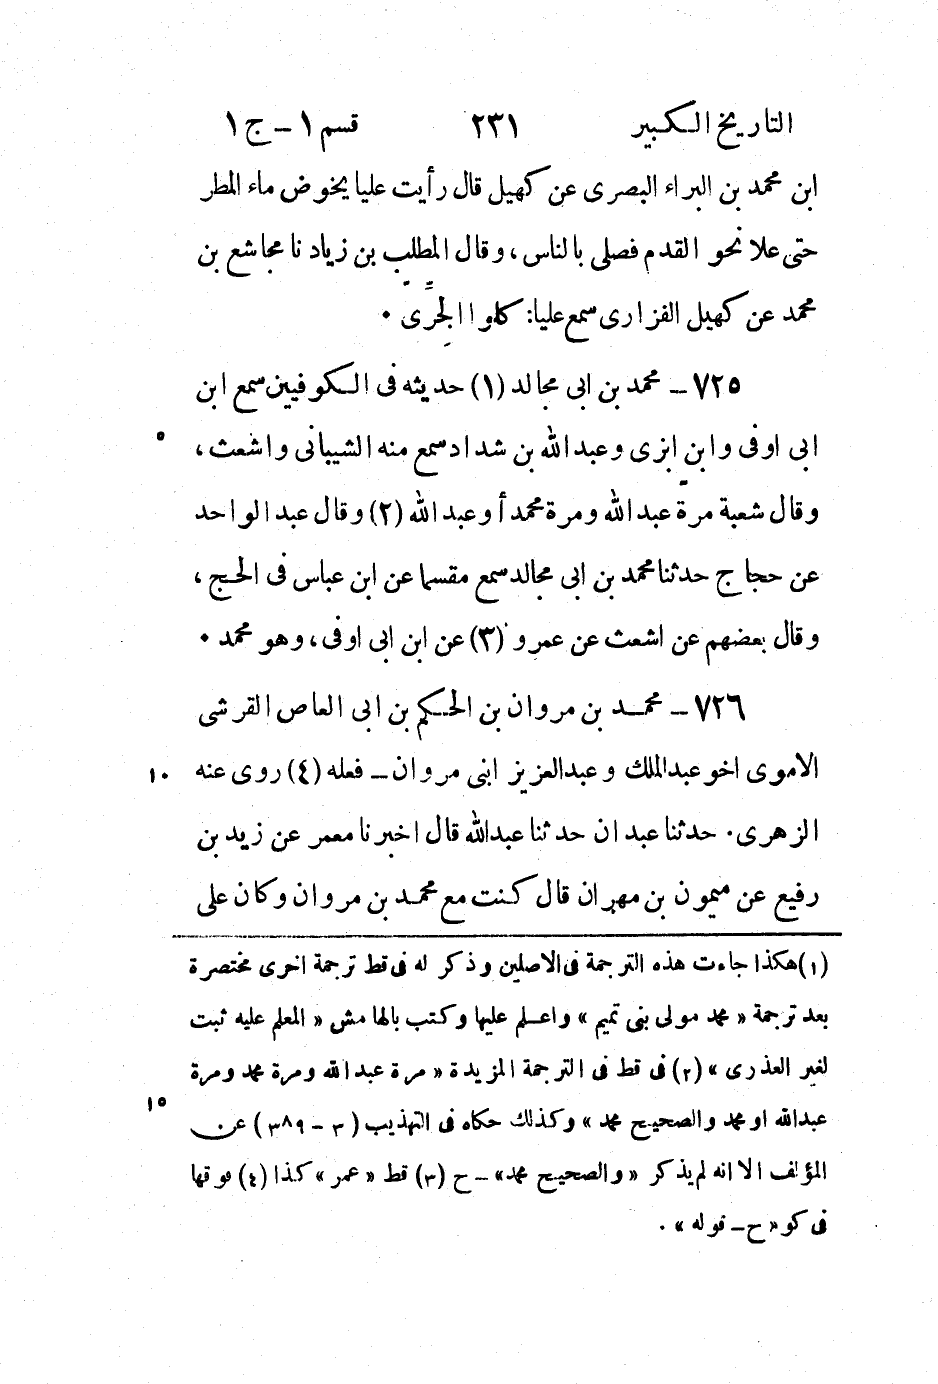 التاريخ الكبير ٢٣١ قسم ١ – ج ١
ابن محمد بن البراء البصرى عن كهيل قال رأيت عليا يخوض ماء المطر
حتى علا نحو القدم فصلى بالناس، وقال المطلب بن زياد نا مجاشع بن
محمد عن كهيل الفزارى سمع عليا: كلوا الجِرِّى ٠
٧٢٥ – محمد بن ابى مجالد (١) حديثه فى الكوفيين سمع ابن
ابى اوفى وابن ابزى وعبد الله بن شداد سمع منه الشيبانى واشعث، ٥
وقال شعبة مرة عبد الله ومرة محمد أو عبد الله (٢) وقال عبد الواحد
عن حجاج حدثنا محمد بن ابى مجالد سمع مقسما عن ابن عباس فى الحج،
وقال بعضهم عن اشعث عن عمرو (٣) عن ابن ابى اوفى، وهو محمد ٠
٧٢٦ – محمد بن مروان بن الحكم بن ابى العاص القرشى
الاموى اخو عبد الملك وعبد العزيز ابنى مروان – فعله (٤) روى عنه ١٠
الزهرى. حدثنا عبدان حدثنا عبد الله قال اخبرنا معمر عن زيد بن
رفيع عن ميمون بن مهران قال كنت مع محمد بن مروان وكان على
(١) هكذا جاءت هذه الترجمة فى الاصلين وذكر له فى قط ترجمة اخرى مختصرة
بعد ترجمة « محمد مولى بنى تميم » واعلم عليها وكتب بالهامش « المعلم عليه ثبت
لغير العذرى » (٢) فى قط فى الترجمة المزيدة « مرة عبد الله ومرة محمد ومرة
عبد الله او محمد والصحيح محمد » وكذلك حكاه فى التهذيب (٣ – ٣٨٩) عن ١٥
المؤلف الا انه لم يذكر « والصحيح محمد» – ح (٣) قط « عمر » كذا (٤) فوقها
فى كو « ح – قوله » .